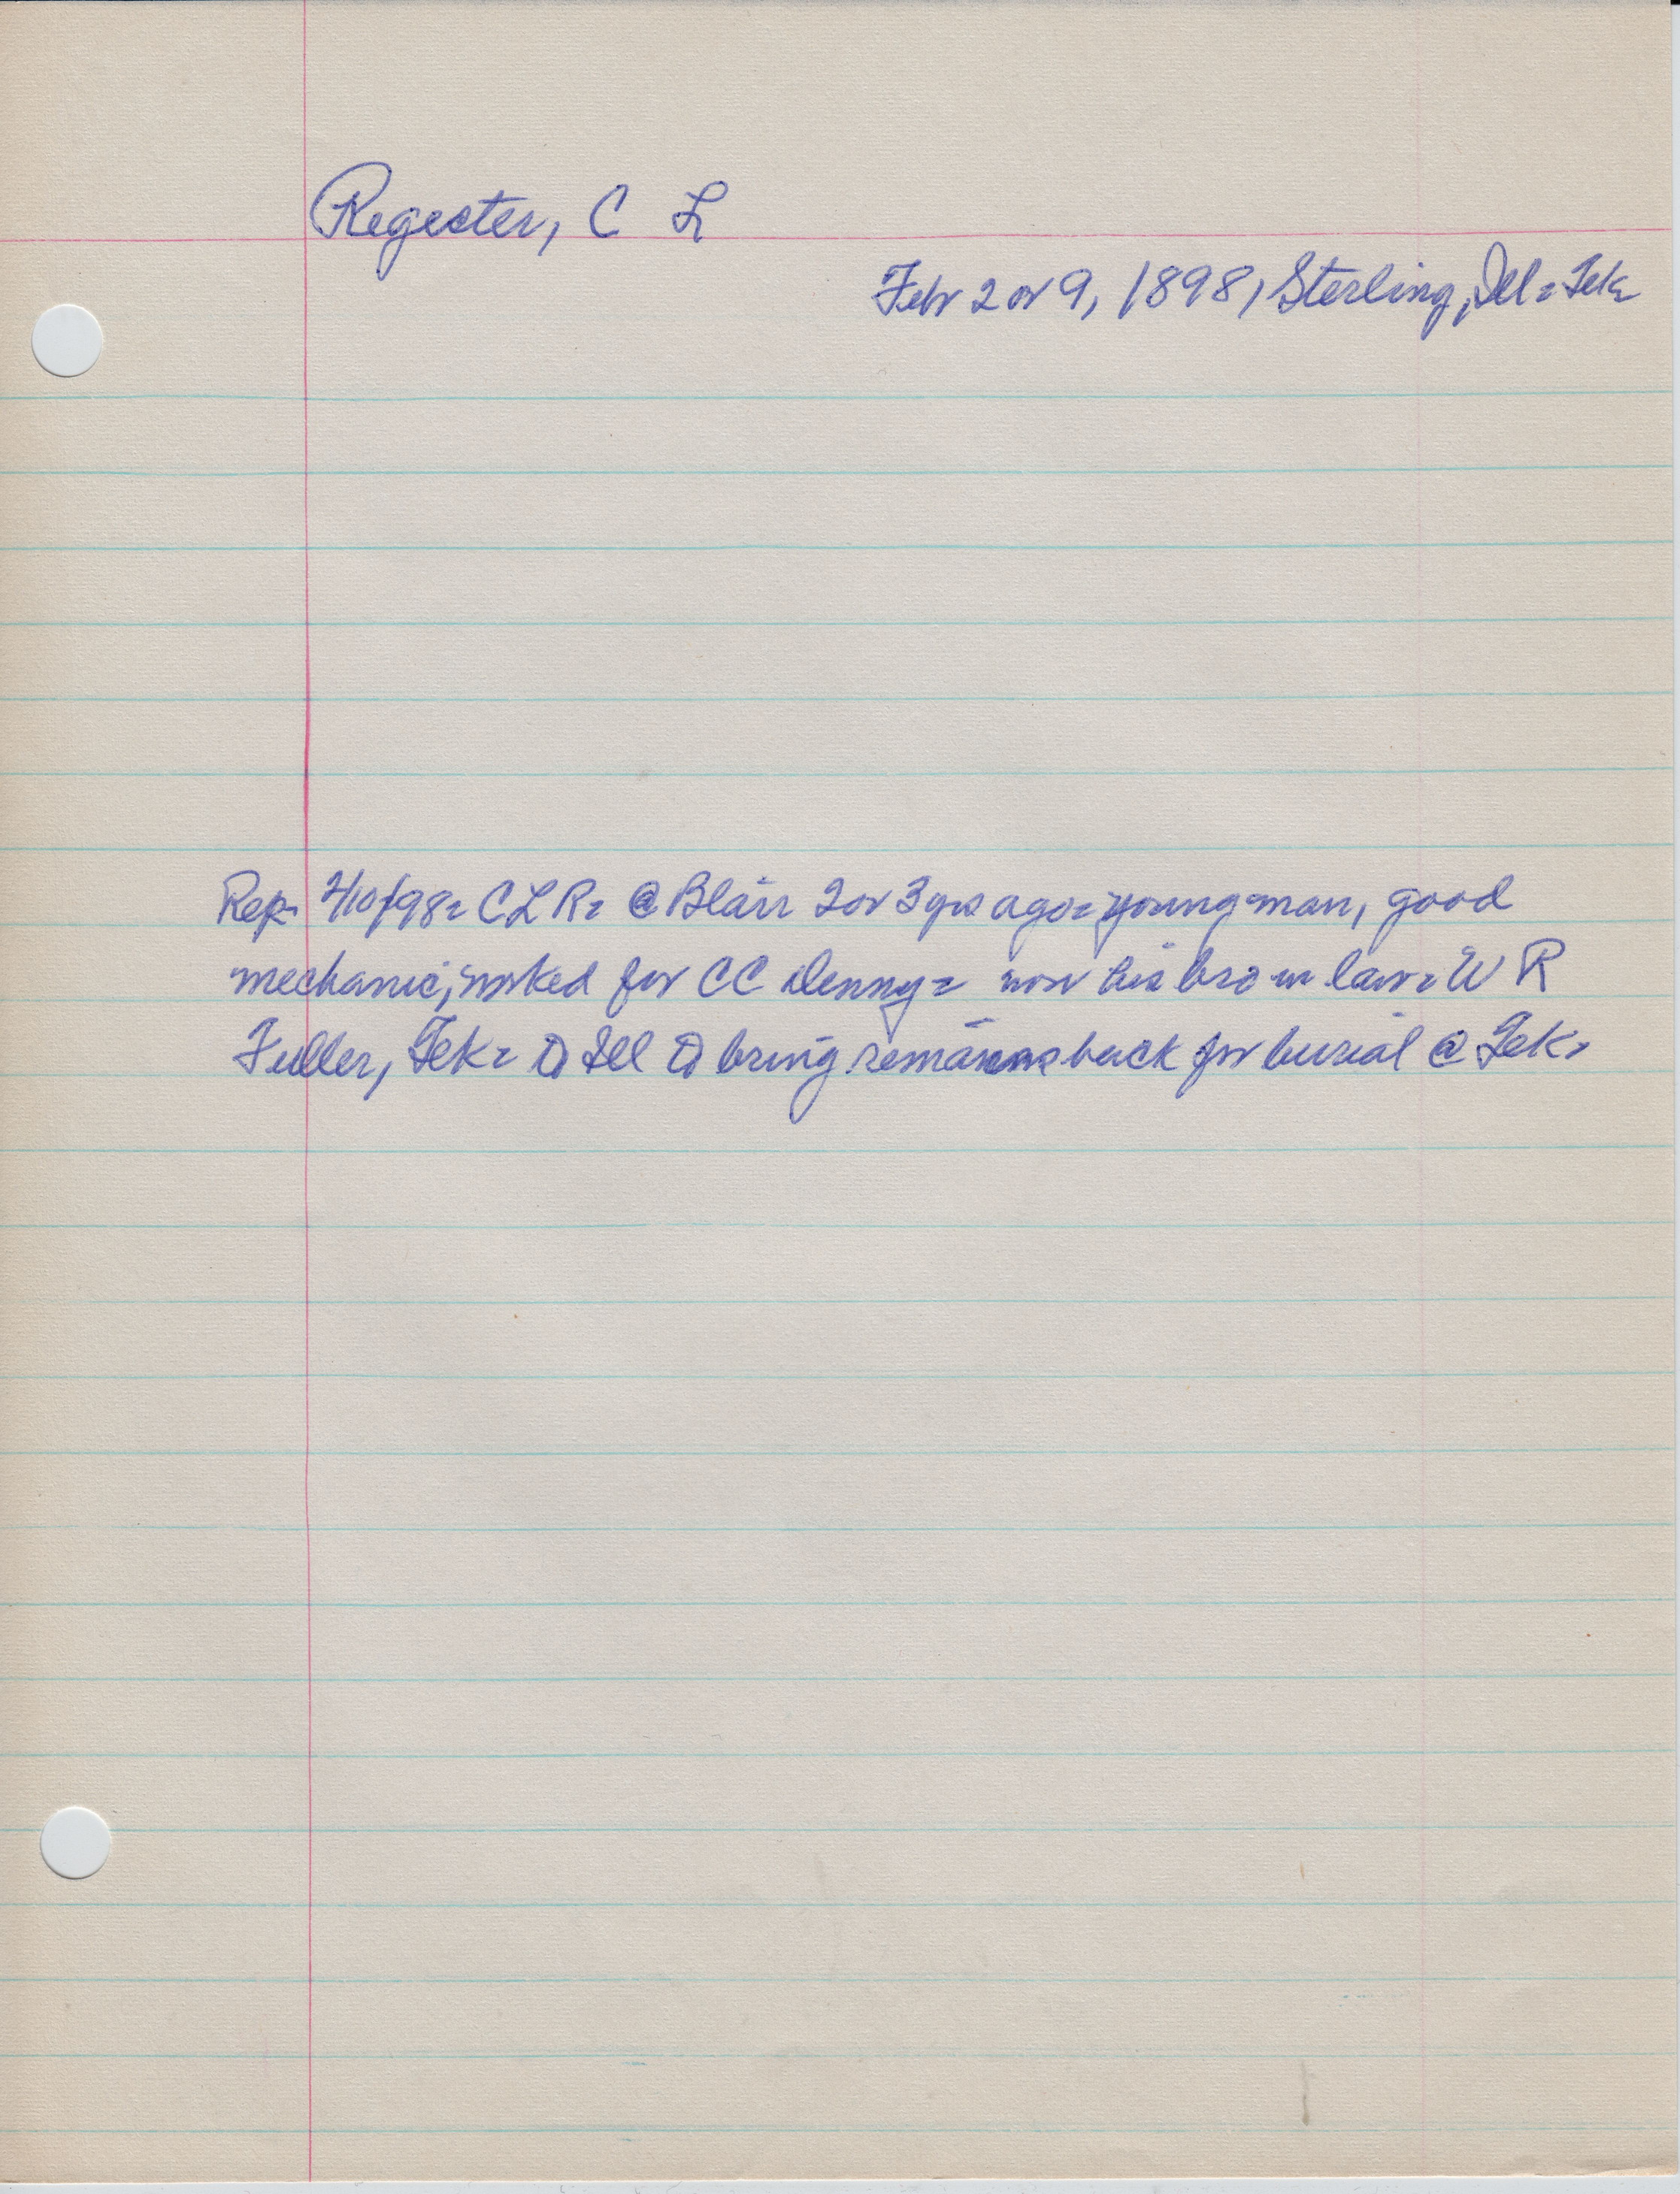 Regester, C L
Feb 2 or 9, 1898, Sterling, Ill = Tek =
Rep. 2/10/98 = C L R = @ Blair 2 or 3 yrs ago = young man, good
mechanic, worked for CC Denny = now his bro in law = W R
Fuller, Tek = to Ill to bring remains back for burial @ Tek =